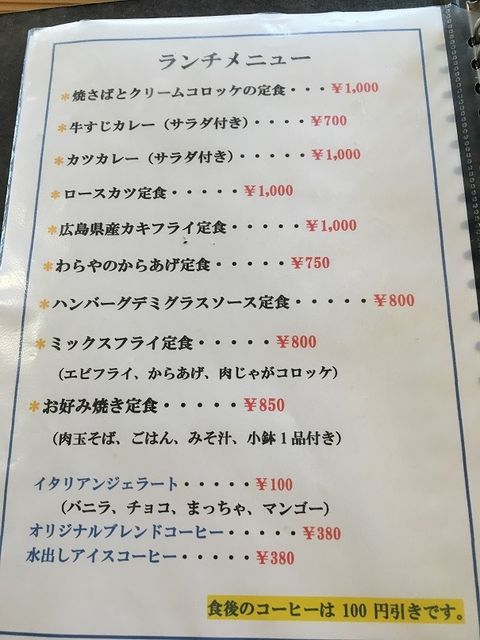 ランチメニュー
*焼さばとクリームコロッケの定食・・・¥1,000
*牛すじカレー（サラダ付き）・・・・¥700
*カツカレー（サラダ付き）・・・・・¥1,000
*ロースカツ定食・・・・・¥1,000
*広島県産カキフライ定食・・・・・¥1,000
*わらやのからあげ定食・・・・・¥750
*ハンバーグデミグラスソース定食・・・・・¥800
*ミックスフライ定食・・・・・¥800
（エビフライ、からあげ、肉じゃがコロッケ）
*お好み焼き定食・・・・・¥850
（肉玉そば、ごはん、みそ汁、小鉢1品付き）
イタリアンジェラート・・・・・¥100
（バニラ、チョコ、まっちゃ、マンゴー）
オリジナルブレンドコーヒー・・・・・¥380
水出しアイスコーヒー・・・・・¥380
食後のコーヒーは 100 円引きです。